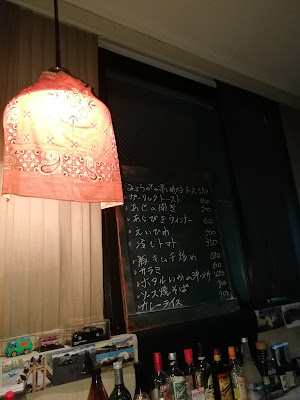 みょうがの串し焼き
ガーリックトースト 400
・あじの開き 500
・あらびきウィンナー 600
・えいひれ 500
・冷しトマト 350
・豚キムチ炒め 600
・サラミ
・ホタルいかの沖づけ
・ソース焼そば 700
・カレーライス 700